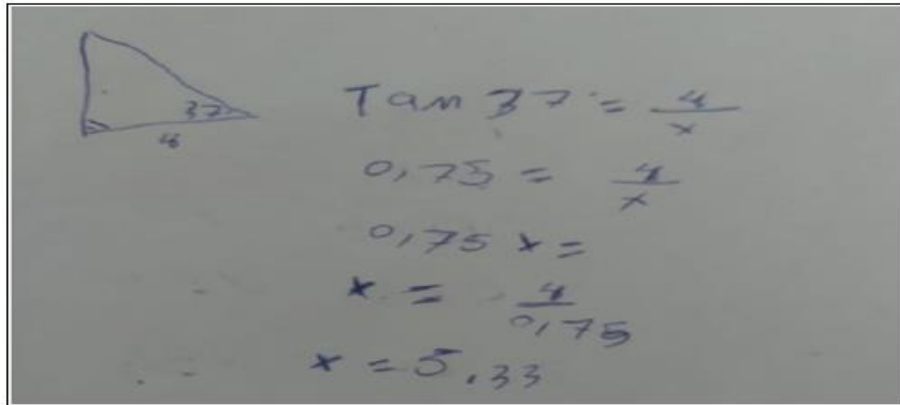 37
4
Tan 37 = 4/x
0,75 = 4/x
0,75 x =
x = 4/0,75
x = 5,33